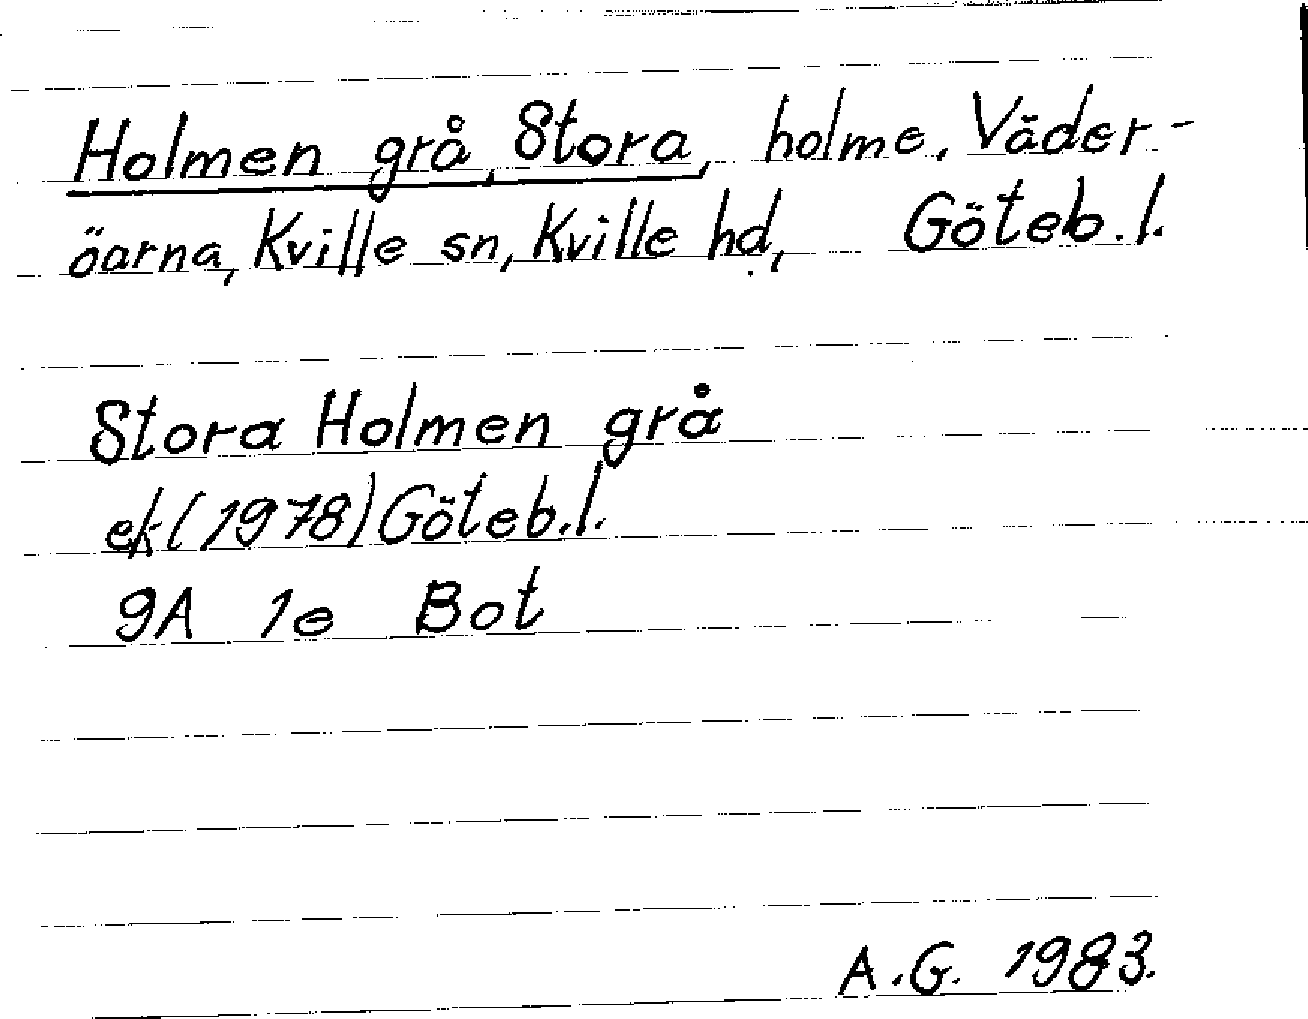 Holmen grå, Stora, holme, Väder-
öarna, Kville sn, Kville hd, Göteb.l.
Stora Holmen grå
ek (1978) Göteb.l.
9A 1e Bot
A.G. 1983.